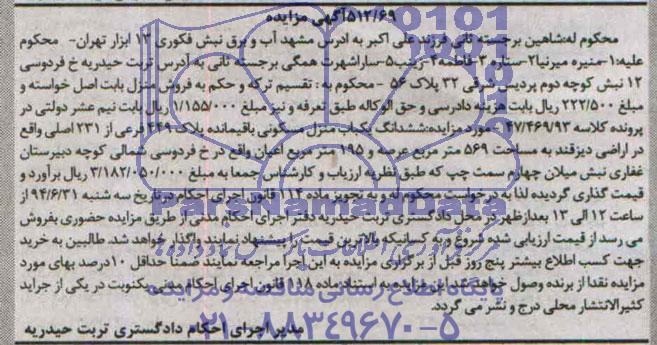 ۵۱۲/۶۹آگهی مزایده
محکوم له:شاهین برجسته ثانی فرزند علی اکبر به ادرس مشهد آب و برق نبش فکوری ۱۳ ابزار تهران- محکوم
علیه:۱-منیره میرنیا۲-ستاره ۳-فاطمه۴-زینب۵-ساراشهرت همگی برجسته ثانی به آدرس تربت حیدریه خ فردوسی
۱۲ نبش کوچه دوم پردیس شرقی ۳۲ پلاک ۵۶ - محکوم به : تقسیم ترکه و حکم به فروش منزل بابت اصل خواسته و
مبلغ ۲۲۲/۵۰۰ ریال بابت هزینه دادرسی و حق الوکاله طبق تعرفه و نیز مبلغ ۱/۱۵۵/۰۰۰ ریال بابت نیم عشر دولتی در
پرونده کلاسه ۱۴۷/۴۶۹/۹۳-مورد مزایده:ششدانگ یکباب منزل مسکونی باقیمانده پلاک ۴۴۹ فرعی از ۲۳۱ اصلی واقع
در اراضی دیزقند به مساحت ۵۶۹ متر مربع عرصه و ۱۹۵ متر مربع اعیان واقع در خ فردوسی شمالی کوچه دبیرستان
غفاری نبش میلان چهارم سمت چپ که طبق نظریه ارزیاب و کارشناس جمعا به مبلغ ۳/۱۸۲/۰۵۰/۰۰۰ ریال برآورد و
قیمت گذاری گردیده لذا به درخواست محکوم له و به تجویز ماده ۱۱۴ قانون اجرای احکام در تاریخ سه شنبه ۹۴/۶/۳۱ از
ساعت ۱۲ الی ۱۳ بعدازظهر در محل دادگستری تربت حیدریه دفتر اجرای احکام مدنی از طریق مزایده حضوری بفروش
می رسد از قیمت ارزیابی شده شروع و به کسانیکه بالاترین قیمت را پیشنهاد نمایند واگذار خواهد شد. طالبین به خرید
جهت کسب اطلاع بیشتر پنج روز قبل از برگزاری مزایده به این اجرا مراجعه نمایند ضمنا حداقل ۱۰درصد بهای مورد
مزایده نقدا از برنده وصول خواهد شد این مزایده به استناد ماده ۱۱۸ قانون اجرای احکام مدنی یکنوبت در یکی از جراید
کثیرالانتشار محلی درج و نشر می گردد.
مدیر اجرای احکام دادگستری تربت حیدریه
ParsNamadData
پایگاه اطلاع رسانی مناقصه و مزایده
۰۲۱-۸۸۳۴۹۶۷۰-۵